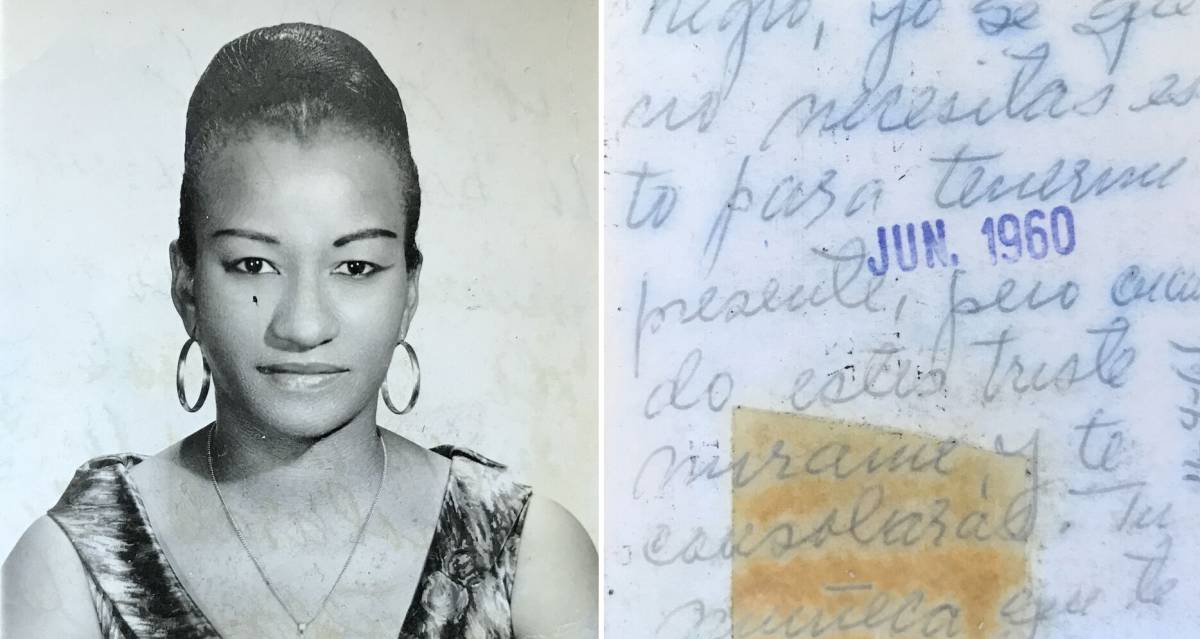 negro, yo se que
no necesitas es
to para tenerme
JUN. 1960
presente, pero cuan
do estes triste
mirame, y te
consolarás. Tu
muñeca que te